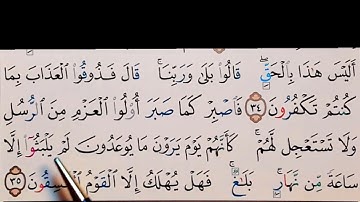 أَلَيْسَ هَٰذَا بِالْحَقِّ ۖ قَالُوا بَلَىٰ وَرَبِّنَا ۚ قَالَ فَذُوقُوا الْعَذَابَ بِمَا
كُنْتُمْ تَكْفُرُونَ ٣٤ فَاصْبِرْ كَمَا صَبَرَ أُولُوا الْعَزْمِ مِنَ الرُّسُلِ
وَلَا تَسْتَعْجِلْ لَهُمْ ۚ كَأَنَّهُمْ يَوْمَ يَرَوْنَ مَا يُوعَدُونَ لَمْ يَلْبَثُوا إِلَّا
سَاعَةً مِنْ نَهَارٍ ۚ بَلَاغٌ ۚ فَهَلْ يُهْلَكُ إِلَّا الْقَوْمُ الْفَاسِقُونَ ٣٥